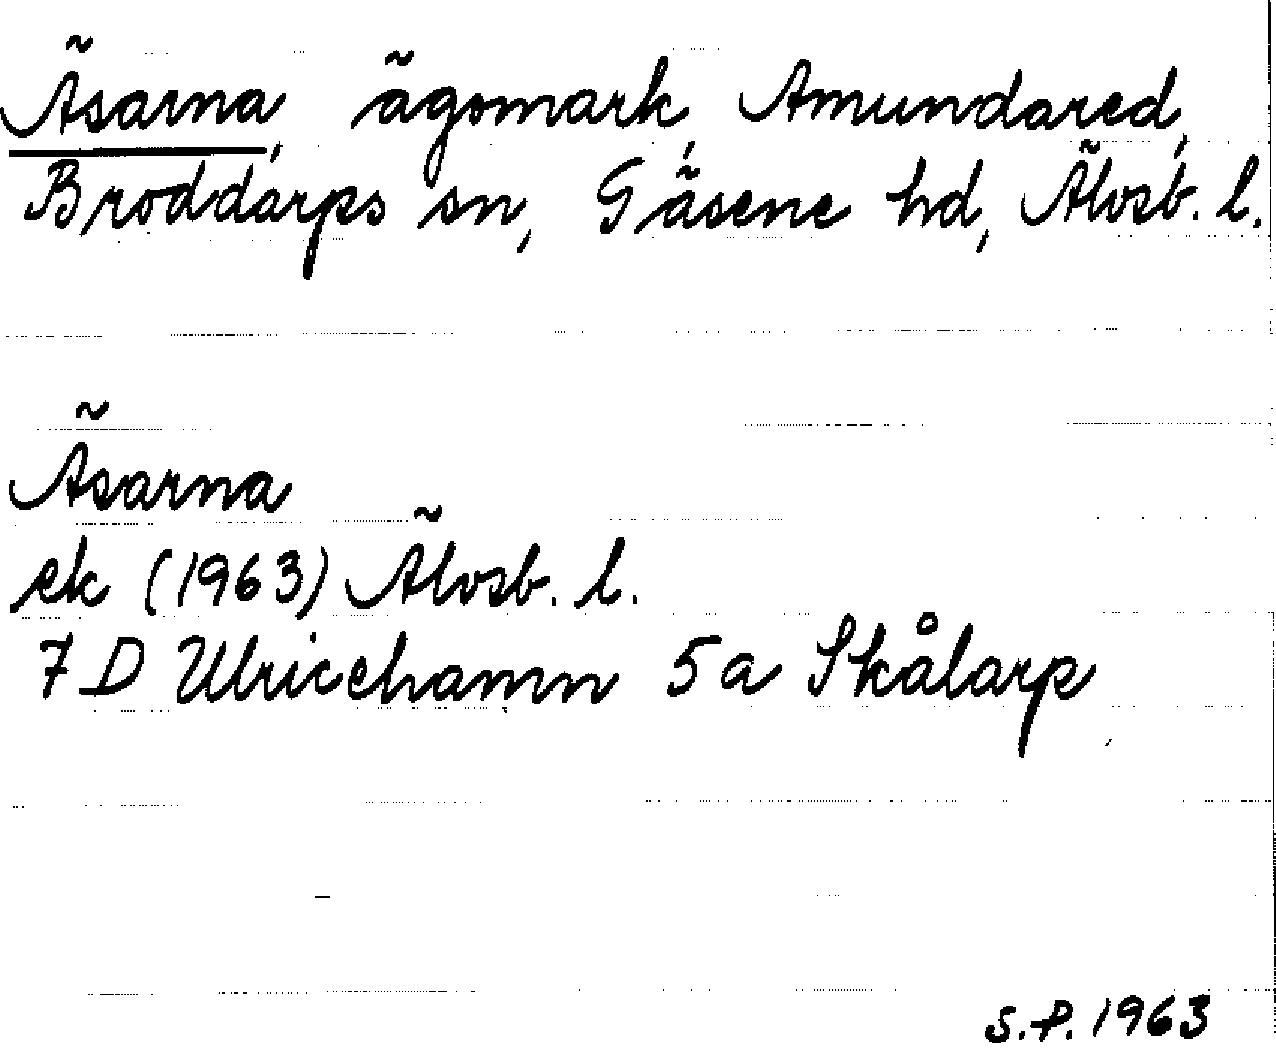 Äsarna, ägomark, Amundared,
Broddarps sn, Gäsene hd, Älvsb. l.
Äsarna
ek (1963) Älvsb. l.
7 D Ulricehamn 5a Skålarp
S.P. 1963